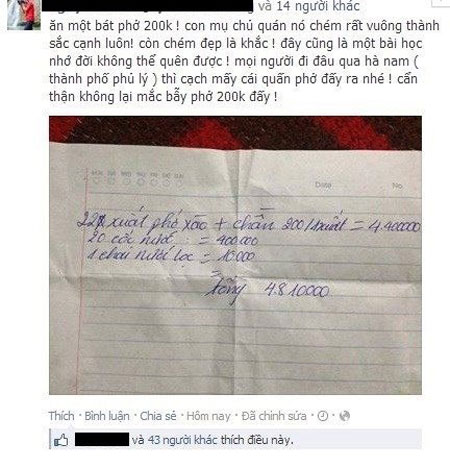 và 14 người khác
ăn một bát phở 200k ! con mụ chủ quán nó chém rất vuông thành
sắc cạnh luôn! còn chém đẹp là khắc ! đây cũng là một bài học
nhớ đời không thể quên được ! mọi người đi đâu qua hà nam (
thành phố phủ lý ) thì cạch mấy cái quấn phở đấy ra nhé ! cẩn
thận không lại mắc bẫy phở 200k đấy !
Date No
22 xuất phở xào + chần 200/1xuất = 4.400000
20 cốc nước = 400.000
1 chai nước lọc = 10.000
=
Tổng 4.810000
Thích · Bình luận · Chia sẻ · Hôm nay · Đã chỉnh sửa ·
và 43 người khác thích điều này.